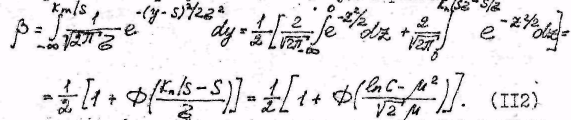 β = ∫_{-∞}^{Km/S} 1/√2π z e^{-(y-S)²/2z²} dy = 1/2 [ 2/√2π ∫_{-∞}^{0} e^{-z²/2} dz + 2/√2π ∫_{0} e^{-z²/2} dz ] =
= 1/2 [ 1 + Φ( (Kn/S - S)/z ) ] = 1/2 [ 1 + Φ( (ln C - μ²)/(√2 μ) ) ]. (II2)